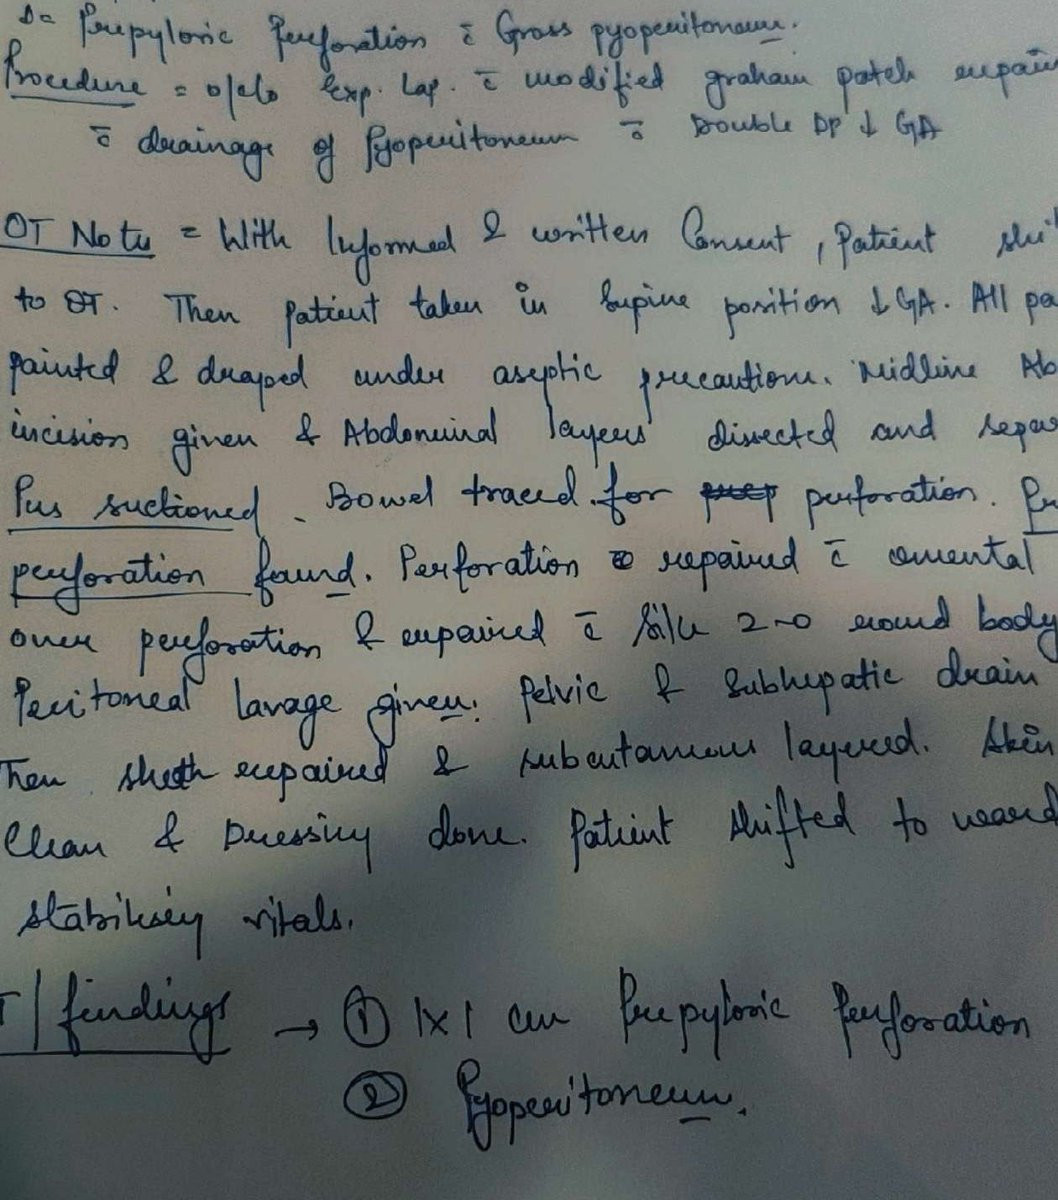 D= Prepyloric Perforation c̄ Gross pyoperitoneum.
Procedure = Exp. Lap. c̄ modified graham patch repair
c̄ drainage of Pyoperitoneum c̄ Double DP ↓ GA
OT Note = With Informed & written Consent, Patient
to OT. Then patient taken in supine position ↓ GA. All
painted & draped under aseptic precautions. Midline Ab
incision given & Abdominal layers dissected and separ
Pus suctioned. Bowel traced for perforation. Pr
perforation found. Perforation repaired c̄ omental
over perforation & repaired c̄ Silk 2-0 round body
Peritoneal lavage given. Pelvic & Subhepatic drain
Then repaired & subcutaneous layered. Skin
Clean & Dressing done. Patient shifted to ward
vitals.
T/findings → ① 1x1 cm Prepyloric Perforation
② Pyoperitoneum.